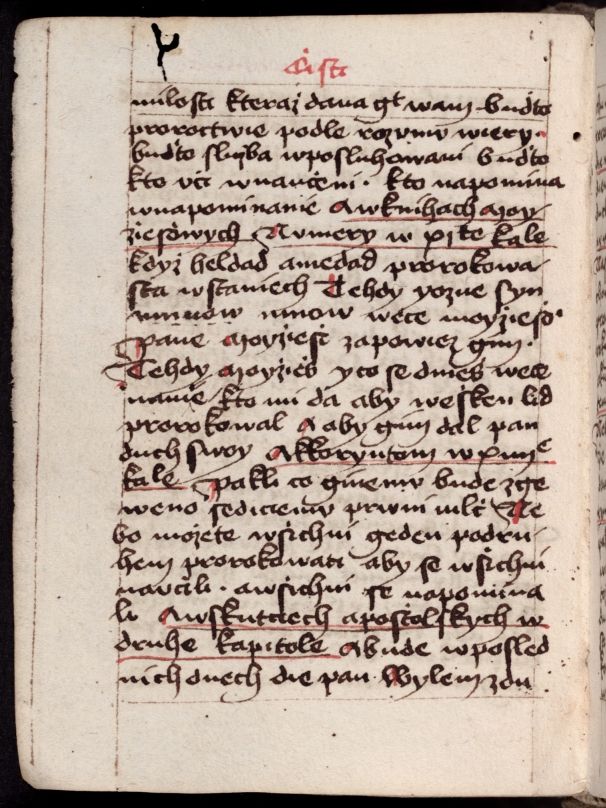 Čisti
milosti kteraž dana gt wam budto
proroctwie podle rozumu wiery
budto služba wposluhowani budto
kto učí wnaučeni · kto napomina
wnapominanie Awknihach moy
ziesowych Numery w xjte kale
když heldad amedad prorokowa
sta wstaniech Tehdy yozue syn
nunow wece moyziesi
pane moyziesi zapowiez gim ·
Tehdy moyzieš yco se dmieš wece
namie kto mi da aby wešken lid
prorokowal A aby gim dal pan
duch swoy Akkoryntom w xiiije
kale pakli co ginemu bude zge
weno sediciemu prwni mlč Ne
bo možete wsichni geden podru
hem prorokowati aby se wsichni
naučili · awsichni se napomina
li Awskutciech apostolskych w
druhe kapitole Abude wposled
nich dnech die pan Wylegi zdu